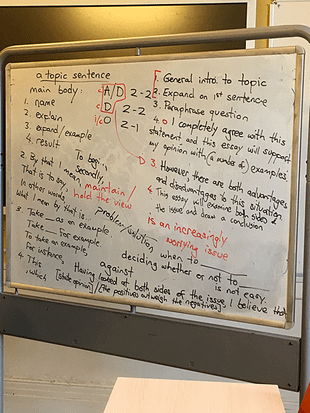 a topic sentence
main body:
1. name
2. explain
3. expand/example
4. result
A/D 2-2
D 2-2
O 2-1
General intro. to topic
2. Expand on 1st sentence
3. Paraphrase question
4. O I completely agree with this
statement and this essay will support
my opinion with (a number of) examples
D 3. However, there are both advantages
and disadvantages to this situation.
4 This essay will examine both sides of
the issue and draw a conclusion
is an increasingly
worrying issue
To begin,
Secondly,
2. By that I mean,
That is to say,
In other words,
What I mean by that is...
maintain/
hold the view
problem/solution
3. Take __ as an example
Take __ for example
To take an example,
For instance,
when to
deciding whether or not to
is not easy.
against
4. This
Having looked at both sides of the issue, I believe that
, which [state opinion]/[the positives outweigh the negatives].